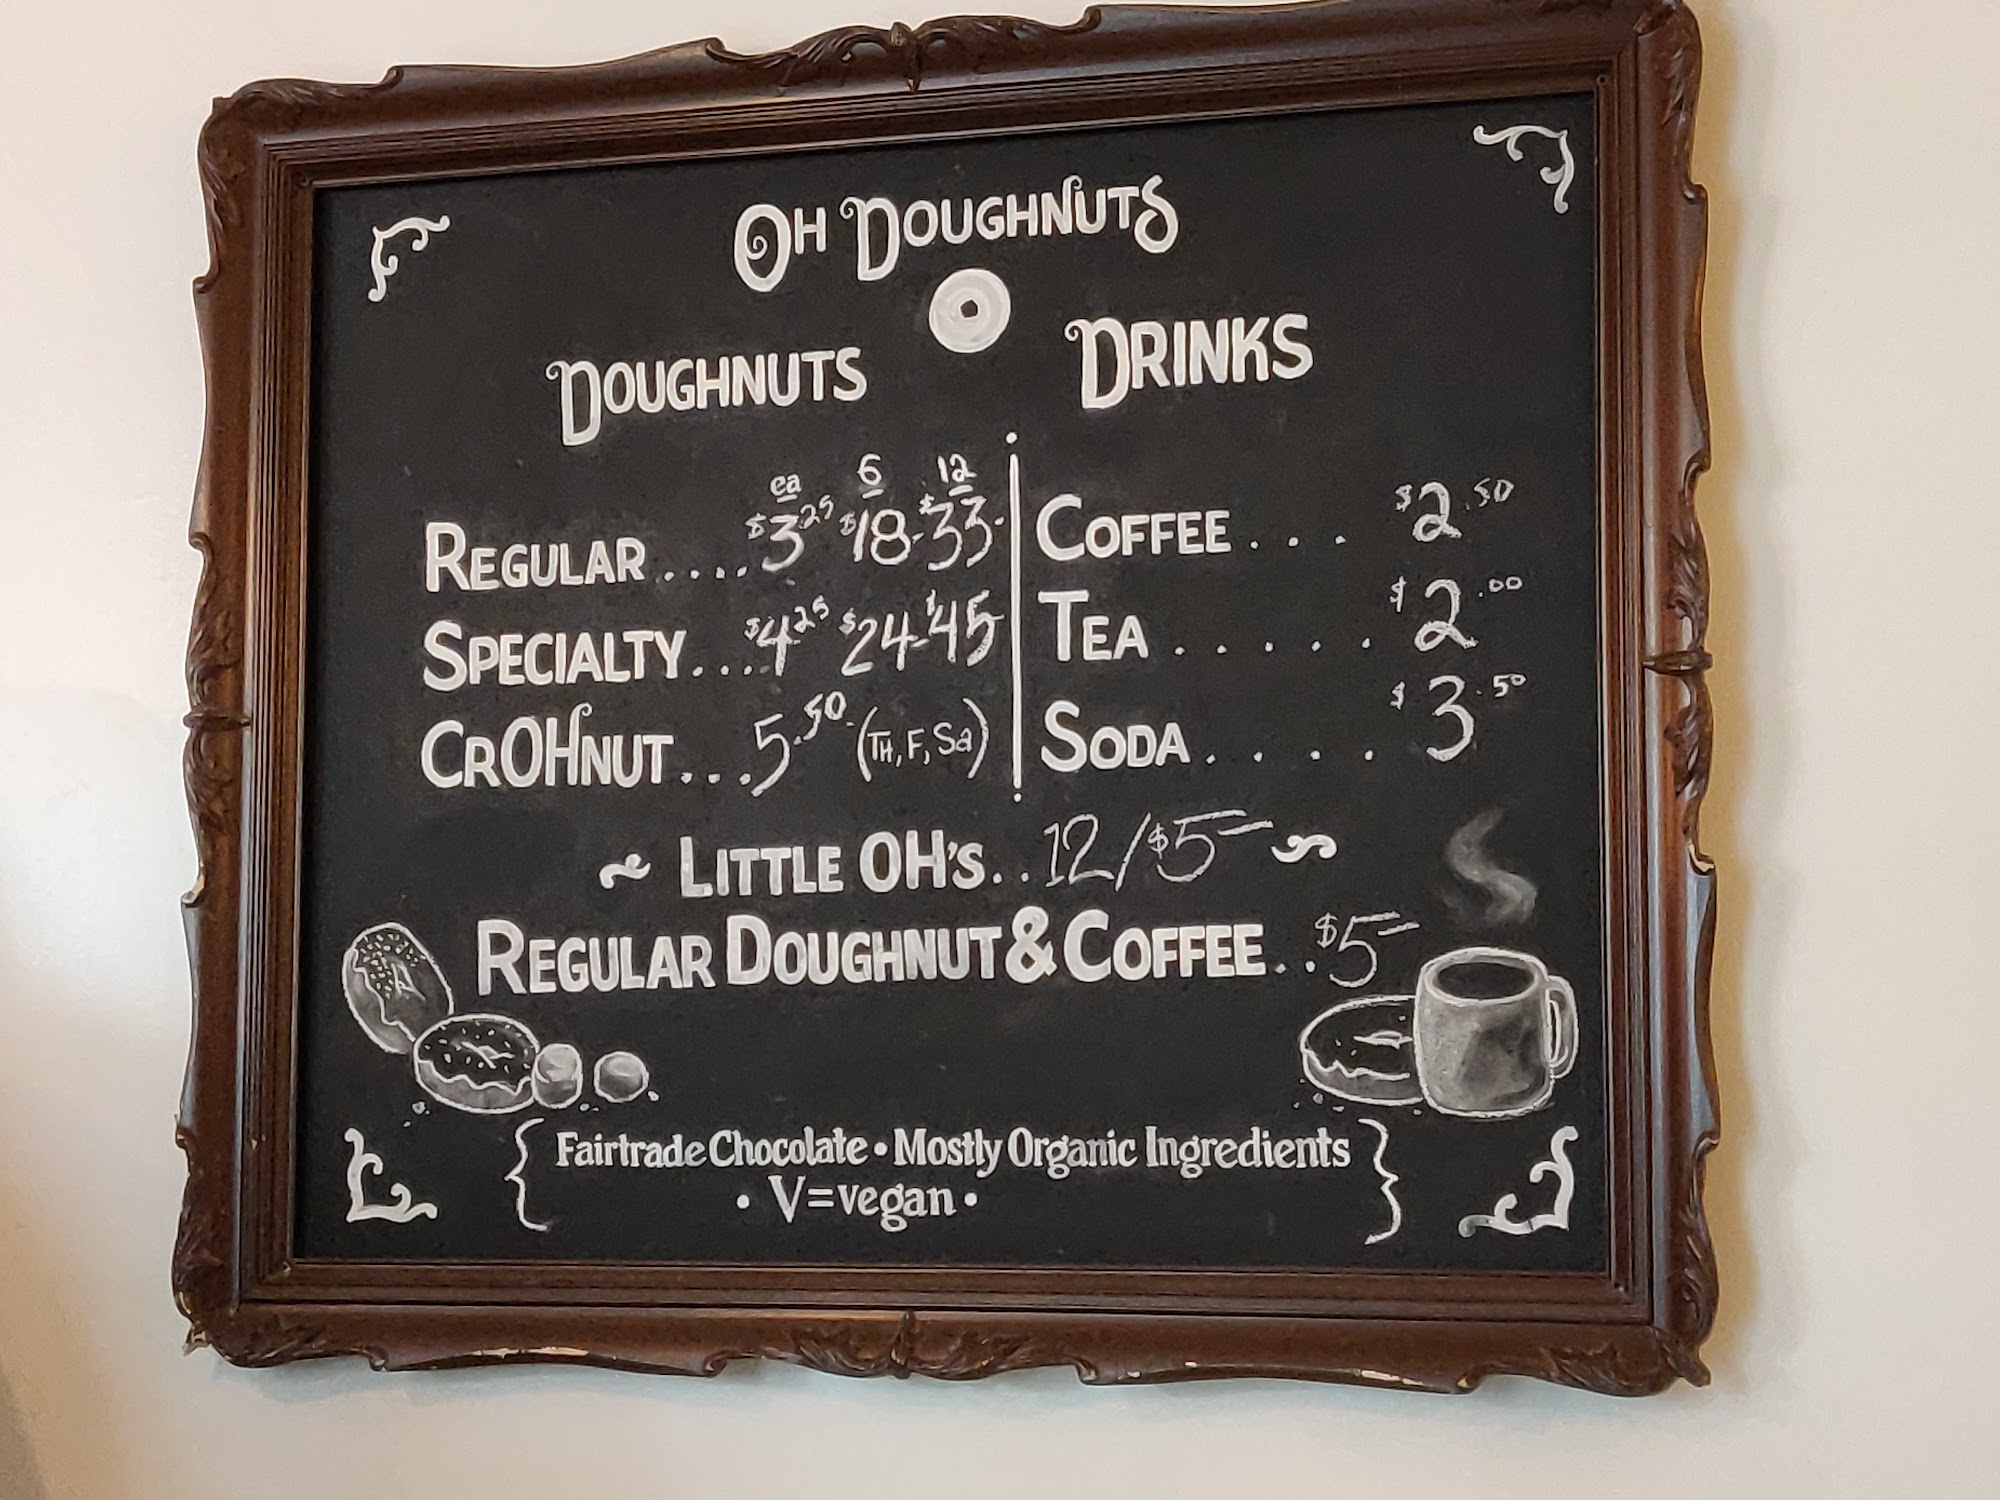 OH DOUGHNUTS
DOUGHNUTS
DRINKS
ea 6 12
REGULAR....$3.25 $18- $33-
SPECIALTY...$4.25 $24- $45
CROHNUT...5.50 (TH, F, Sa)
COFFEE... $2.50
TEA..... $2.00
SODA.... $3.50
~ LITTLE OH'S..12/$5- ~
REGULAR DOUGHNUT & COFFEE..$5-
{ Fairtrade Chocolate • Mostly Organic Ingredients }
• V=vegan •